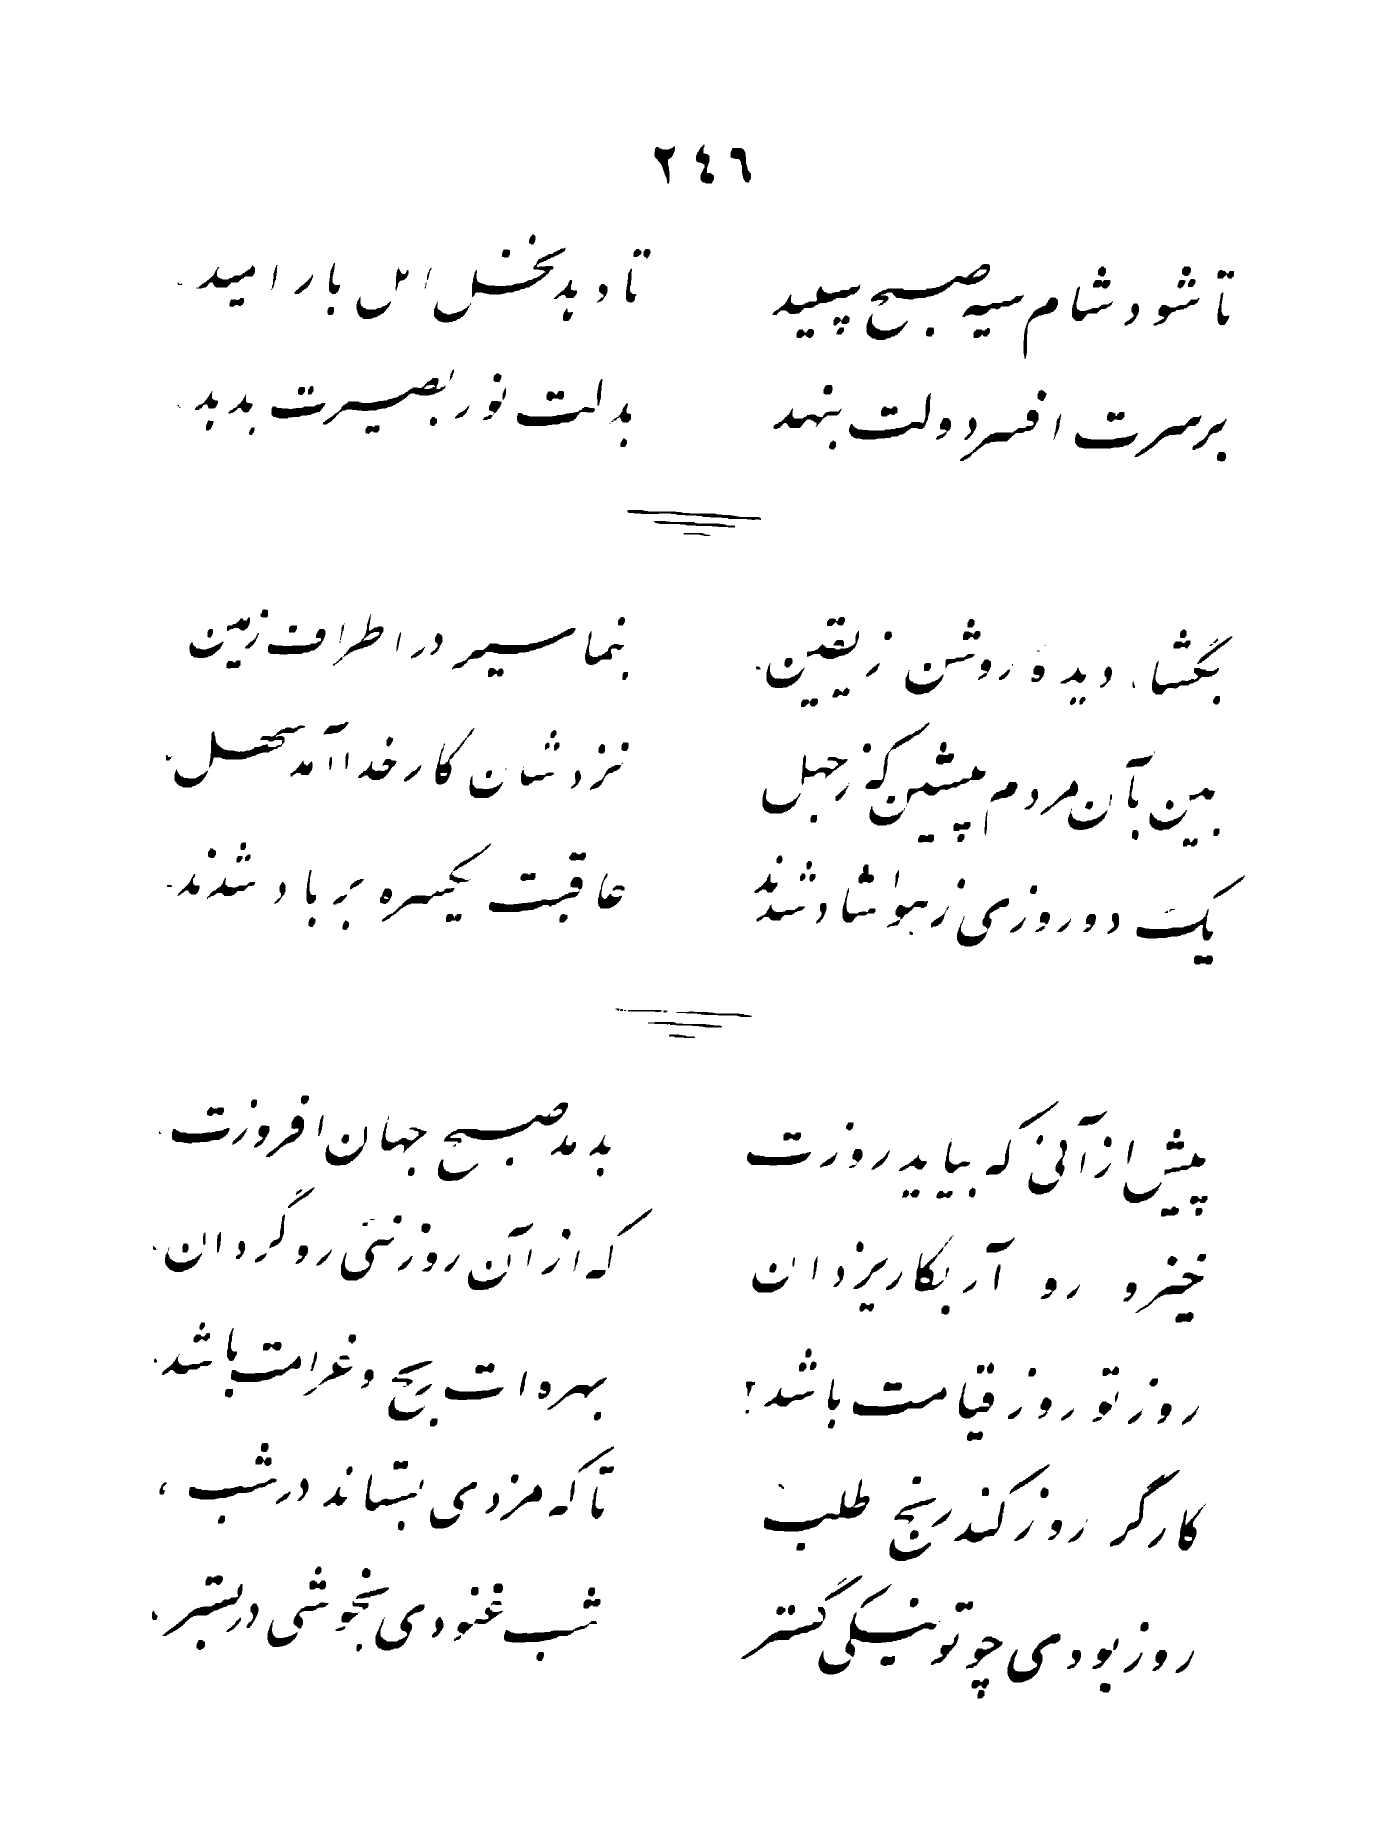 ٢٤٦
تا شود شام سیه صبح سپید تا دهد نخل امل بار امید.
بر سرت افسر دولت بنهد بدلت نور بصیرت بدهد.
بگشا، دیدهٔ روشن ز یقین. بنما سیر در اطراف زمین
ببین بآن مردم پیشین کز جهل نزدشان کار خدا آمد سهل.
یک دو روزی ز هوا شاد شدند عاقبت یکسره بر باد شدند.
پیش از آنی که بیاید روزت بدمد صبح جهان افروزت.
خیز و رو آر بکار یزدان که از آن روز نئی رو گردان.
روز تو روز قیامت باشد؟ بهره ات ربح و غرامت باشد.
کارگر روز کند رنج طلب تا که مزدی بستاند در شب،
روز بودی چو تو نیکی گستر شب غنودی بخوشی در بستر.